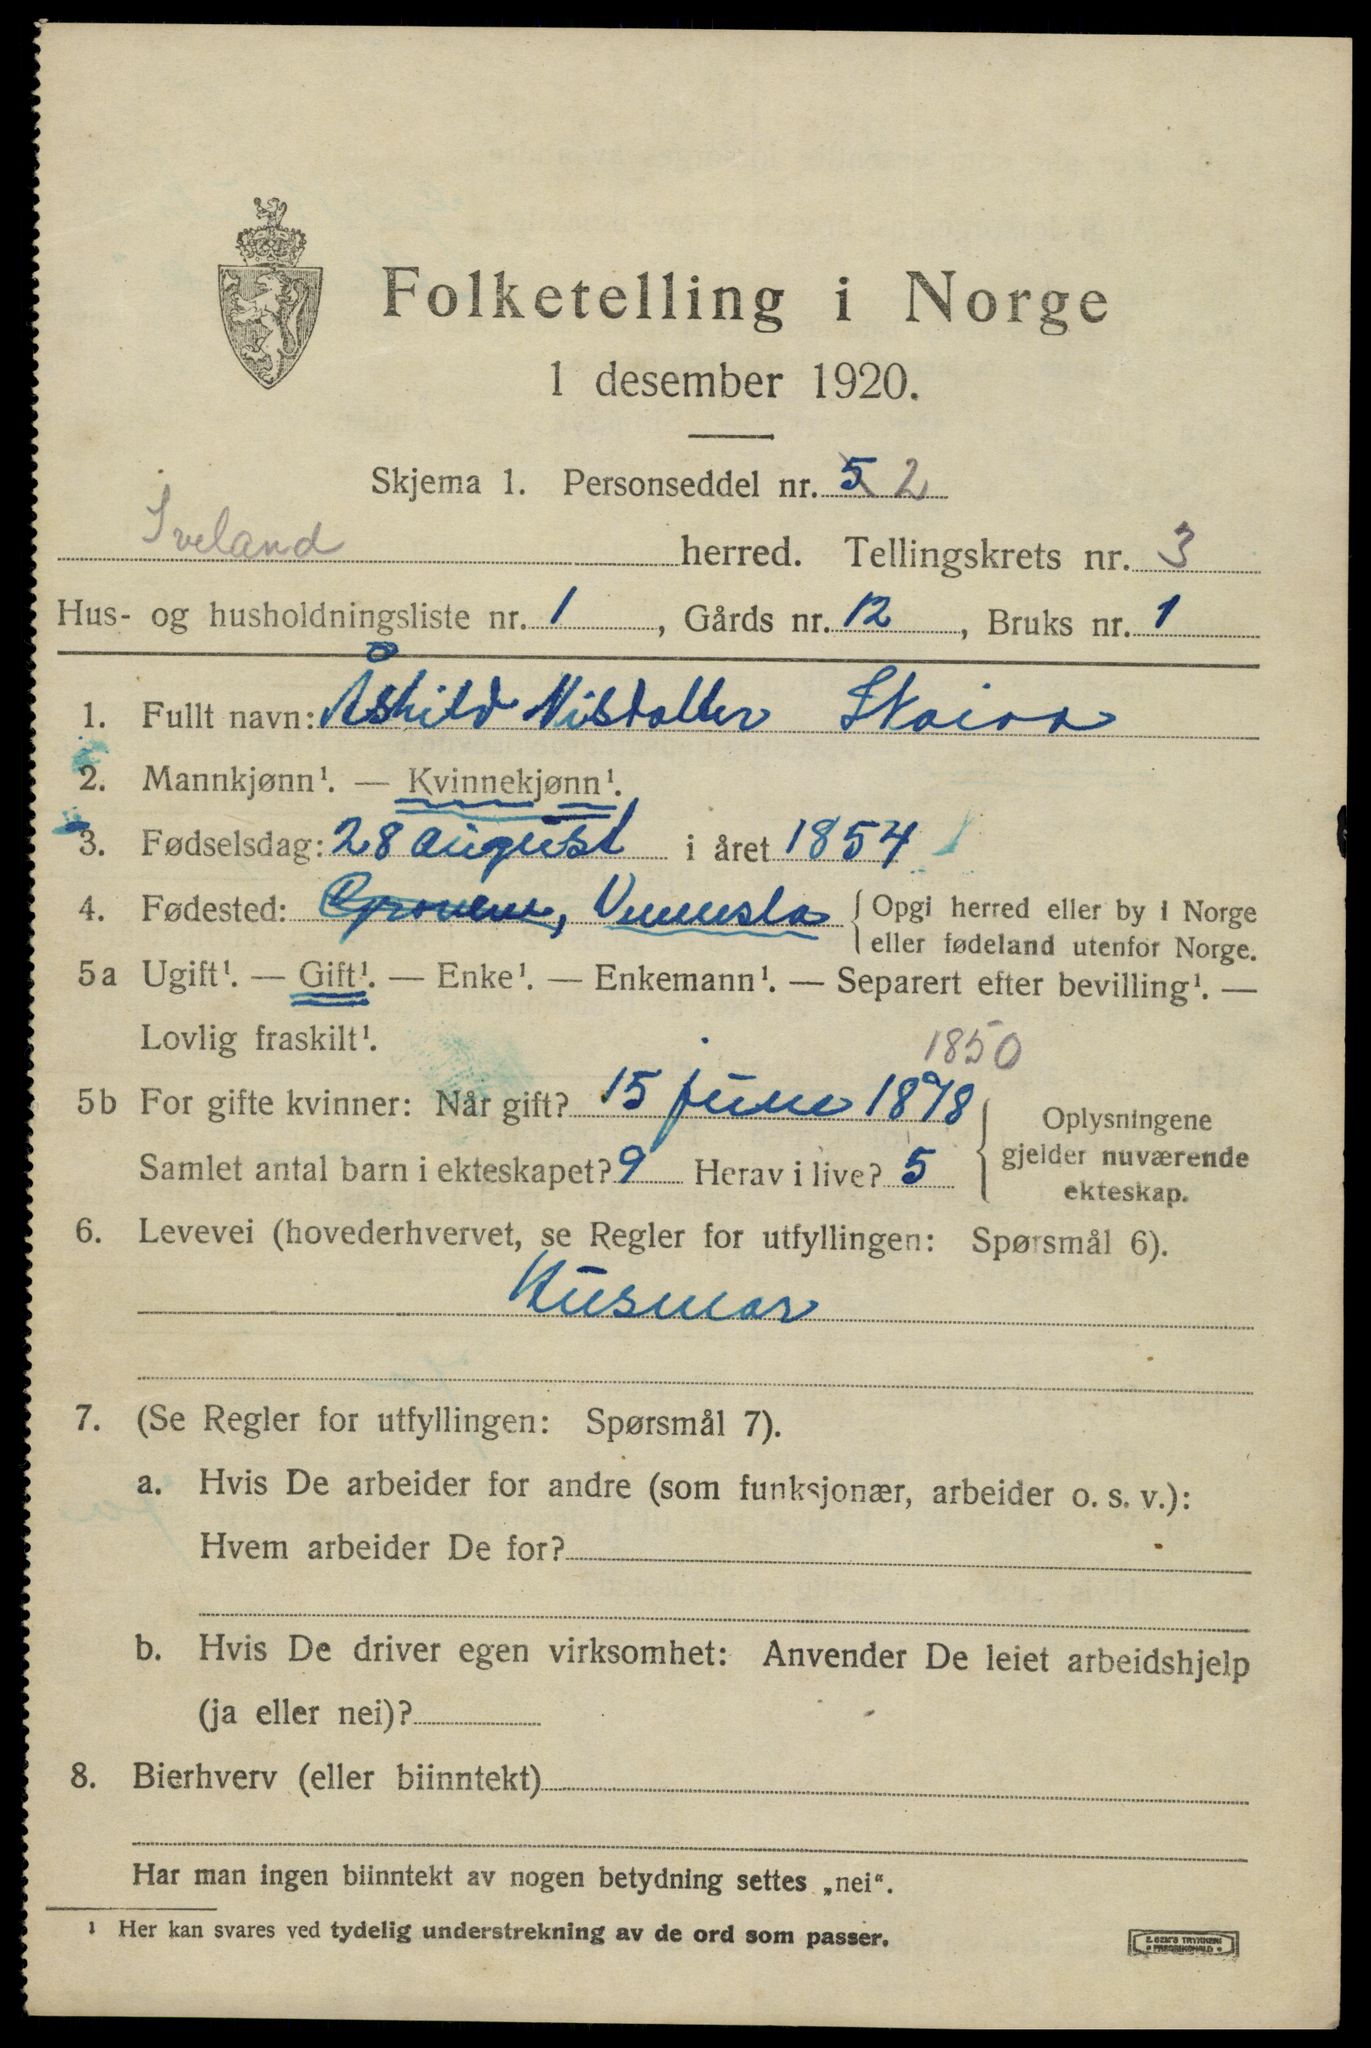 Folketelling i Norge
1 desember 1920.
Skjema 1. Personseddel nr. 5 2
Iveland herred. Tellingskrets nr. 3
Hus- og husholdningsliste nr. 1, Gårds nr. 12, Bruks nr. 1
1. Fullt navn: Åshild Nilsdatter Skaiaa
2. Mannkjønn¹. — Kvinnekjønn¹.
3. Fødselsdag: 28 august i året 1854
4. Fødested: Grovene, Vennesla { Opgi herred eller by i Norge
eller fødeland utenfor Norge.
5a Ugift¹. — Gift¹. — Enke¹. — Enkemann¹. — Separert efter bevilling¹. —
Lovlig fraskilt¹.
1850
5b For gifte kvinner: Når gift? 15 june 1878
Samlet antal barn i ekteskapet? 9 Herav i live? 5
Oplysningene
gjelder nuværende
ekteskap.
6. Levevei (hovederhvervet, se Regler for utfyllingen: Spørsmål 6).
Husmor
7. (Se Regler for utfyllingen: Spørsmål 7).
a. Hvis De arbeider for andre (som funksjonær, arbeider o. s. v.):
Hvem arbeider De for?
b. Hvis De driver egen virksomhet: Anvender De leiet arbeidshjelp
(ja eller nei)?
8. Bierhverv (eller biinntekt)
Har man ingen biinntekt av nogen betydning settes „nei“.
¹ Her kan svares ved tydelig understrekning av de ord som passer.